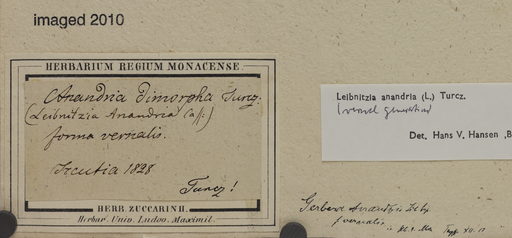 imaged 2010
HERBARIUM REGIUM MONACENSE
Anandria dimorpha Turcz.
(Leibnitzia Anandria Cass.)
forma vernalis.
Ircutia 1828
Turcz!
HERB. ZUCCARINII.
Herbar. Univ. Ludov. Maximil.
Leibnitzia anandria (L.) Turcz.
(vernal generation)
Det. Hans V. Hansen ,B
Gerbera
f. vernalis